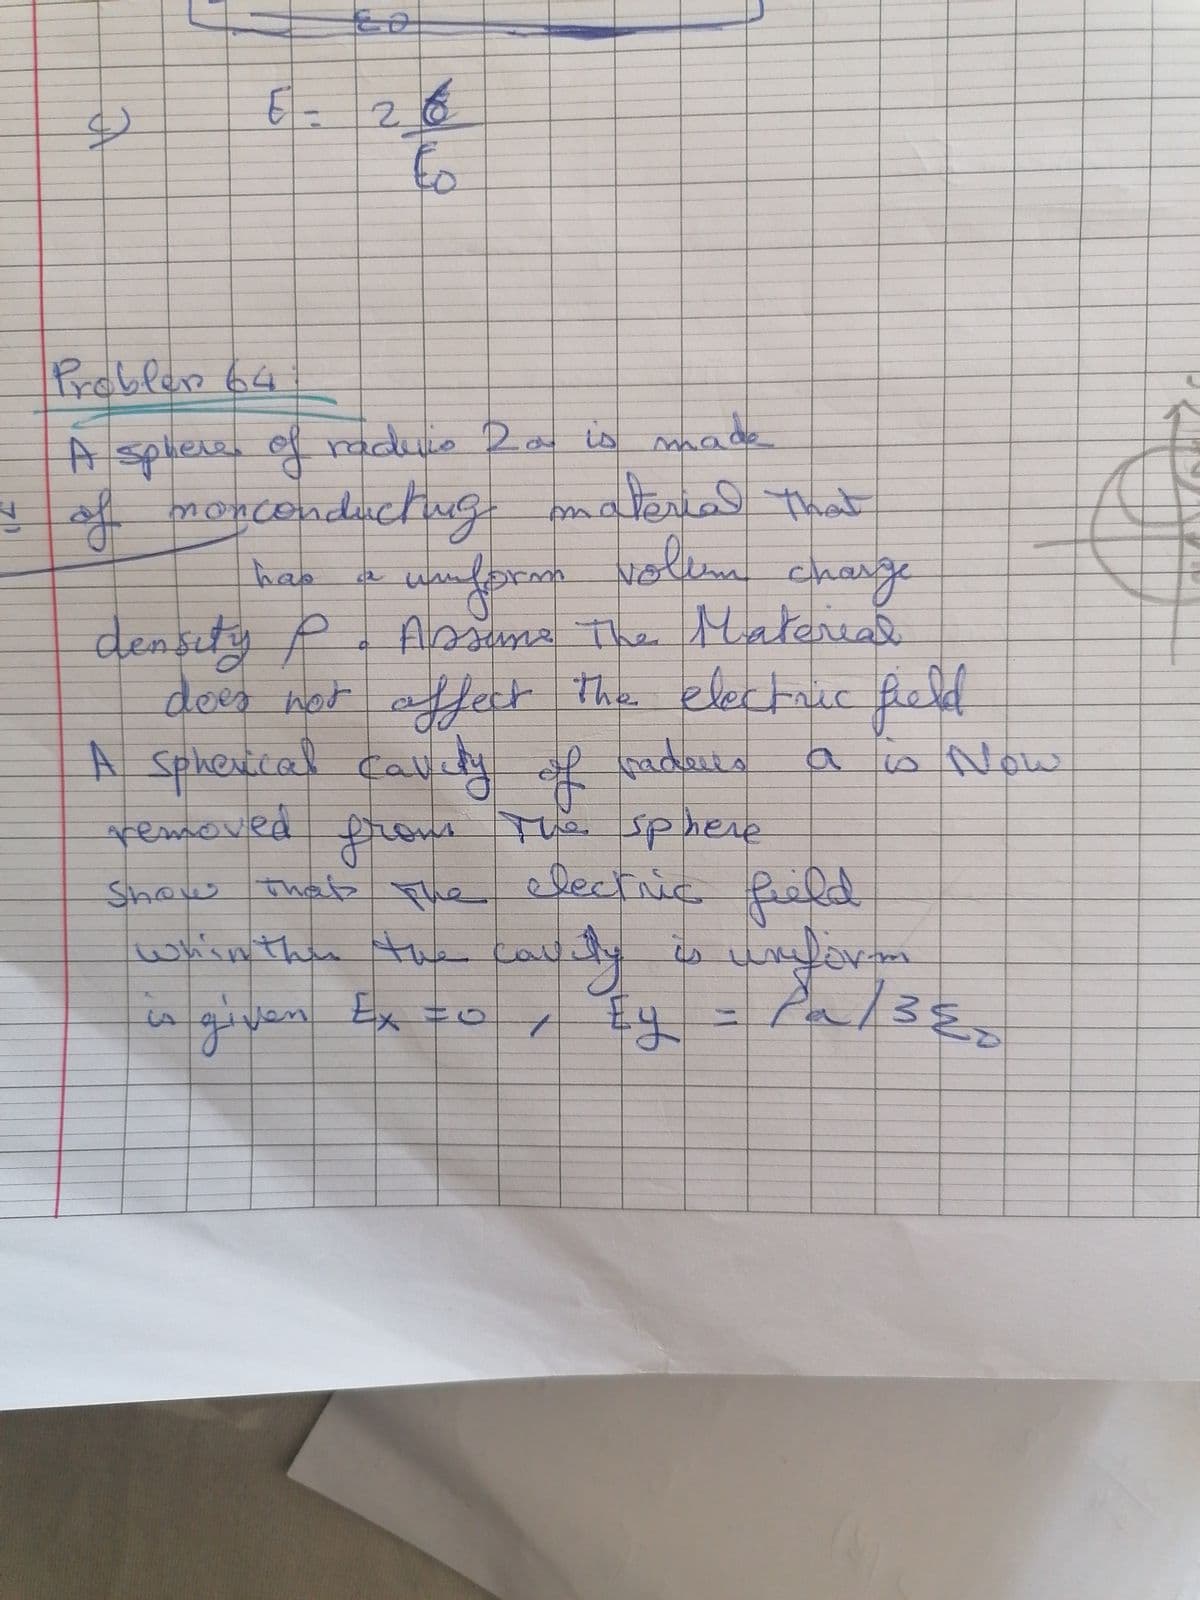 E0
c) E = 2 6
E0
Problem 64:
A sphere of raduis 2a is made
of nonconducting material that
has a uniform volum charge
density ρ. Assume The Material
does not affect the electric field
A spherical cavity of raduis a is Now
removed from The sphere
Show that the electric field
whinthn the cavity is uniform
is given Ex = 0, Ey = ρa/3ε0